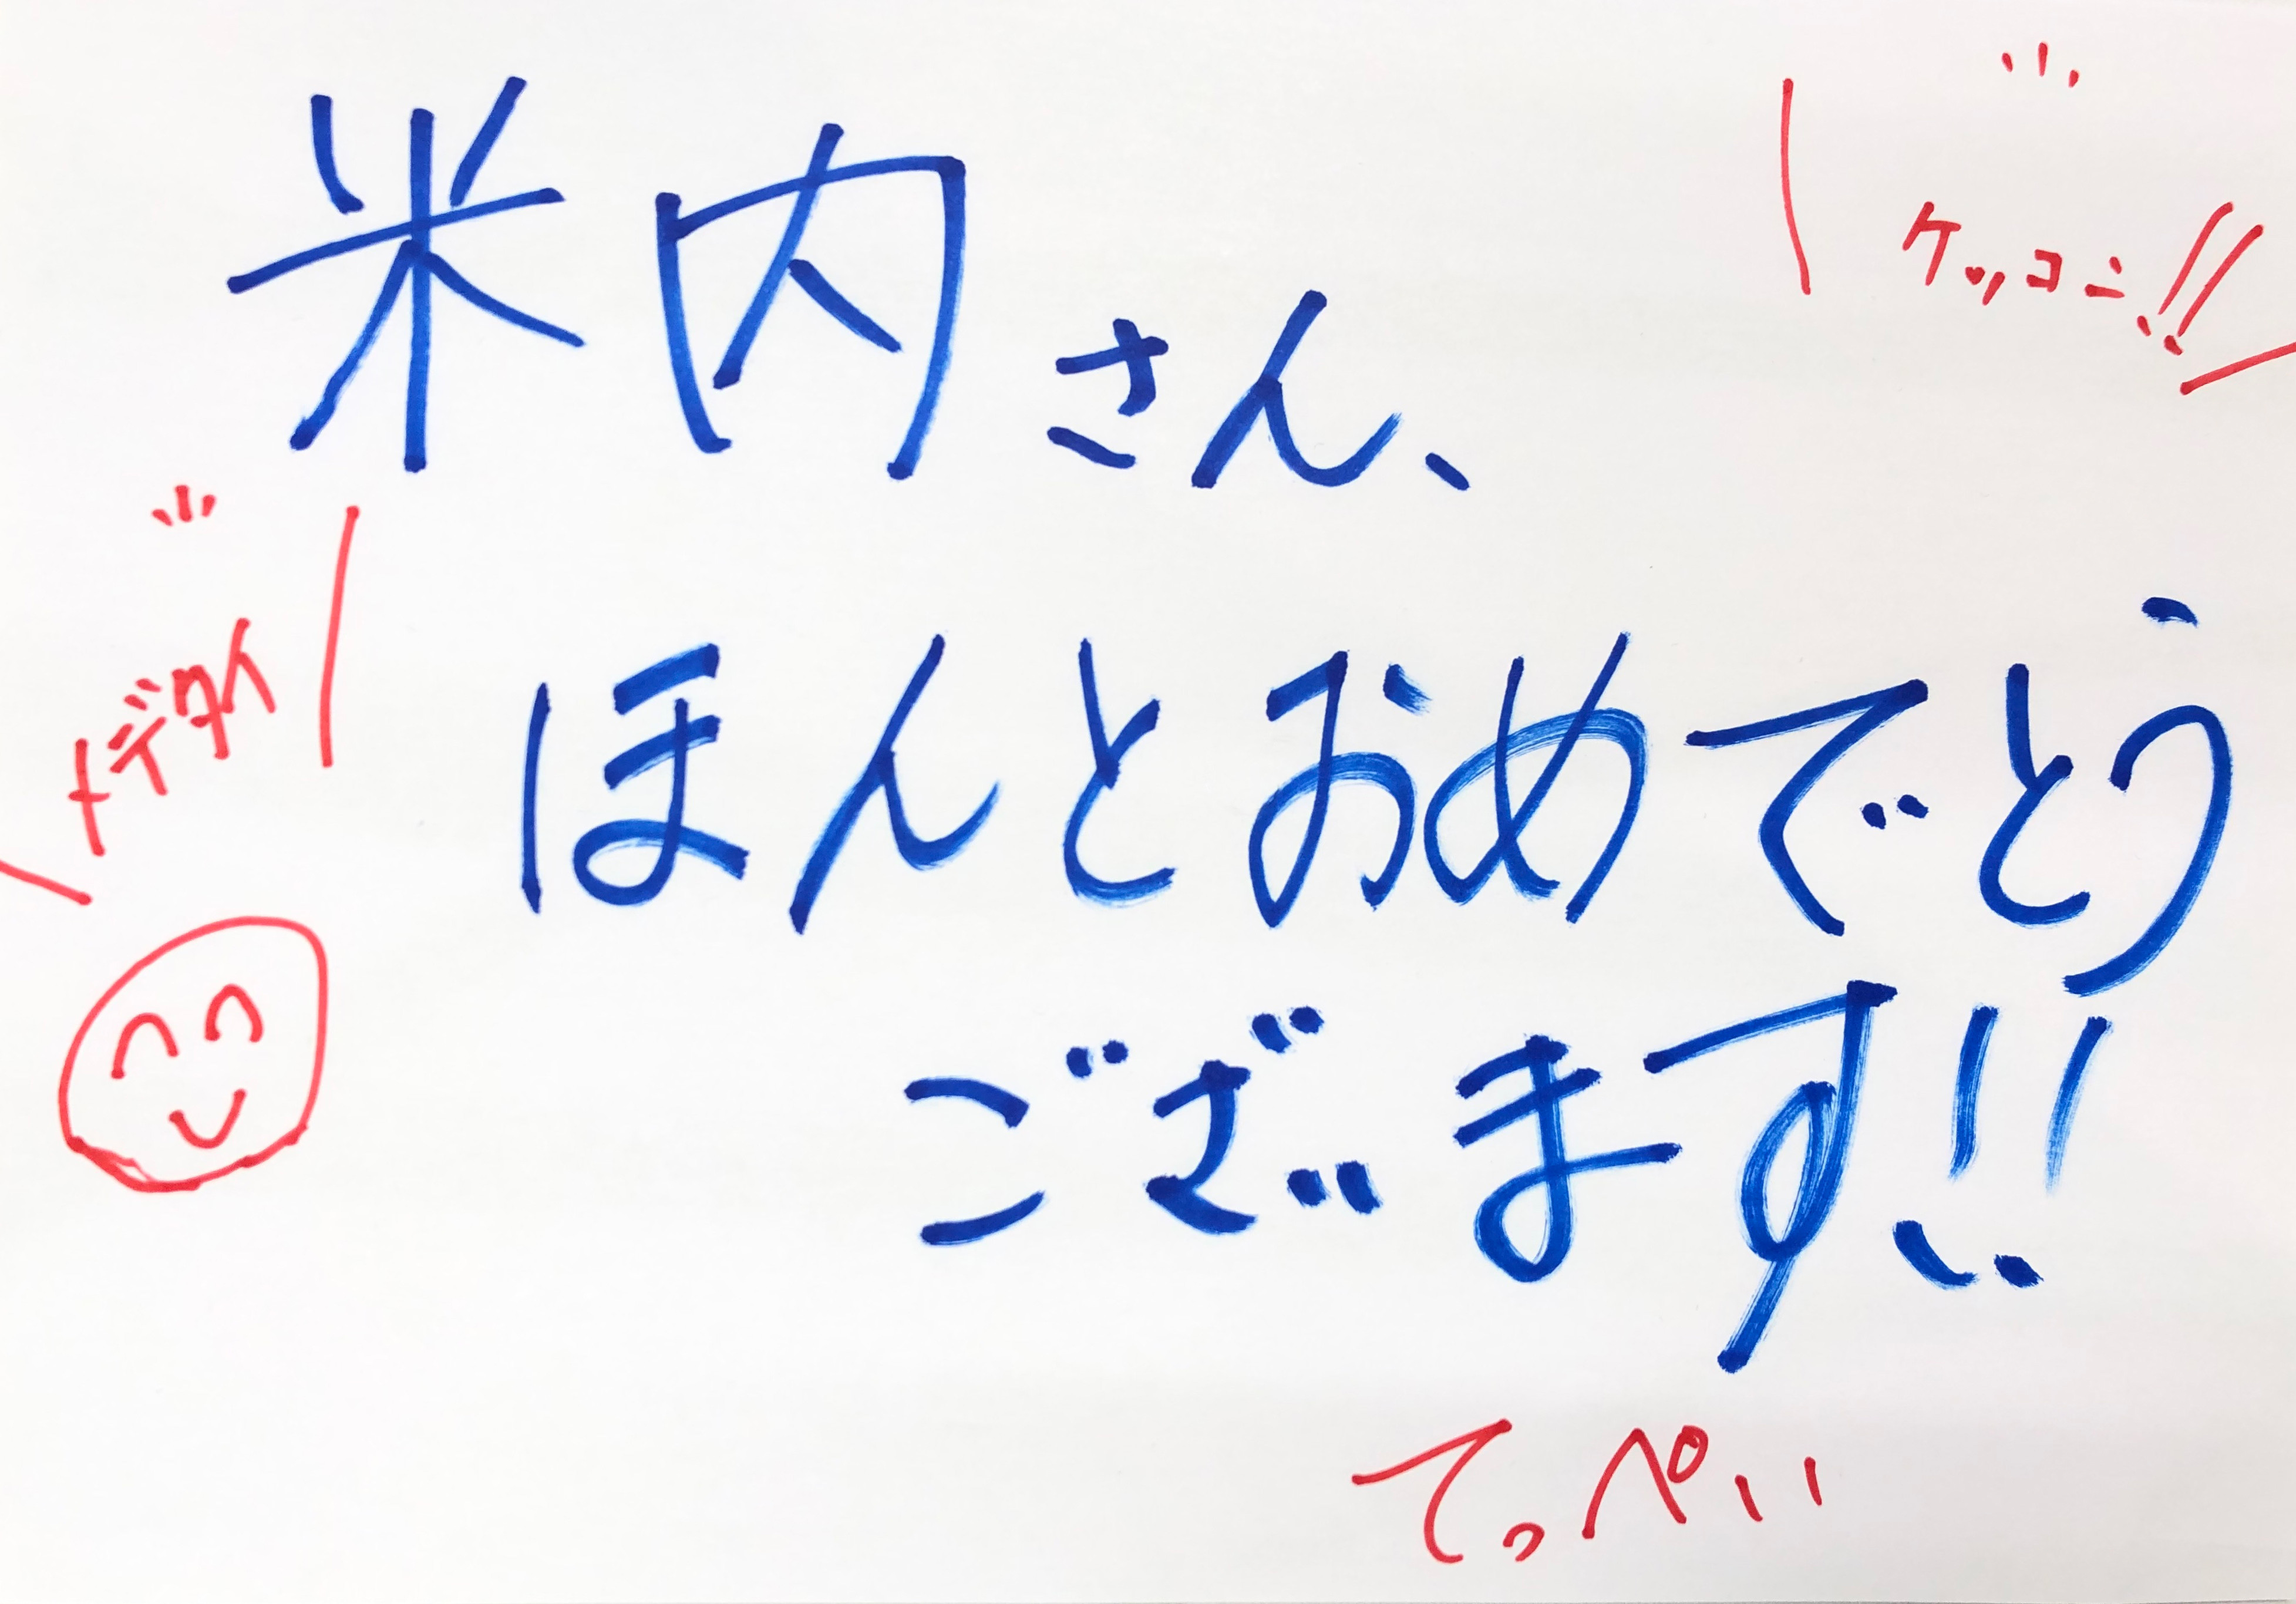 米内さん、
ケッコン!!
メデタイ
ほんとおめでとう
ございます!!
てっぺい